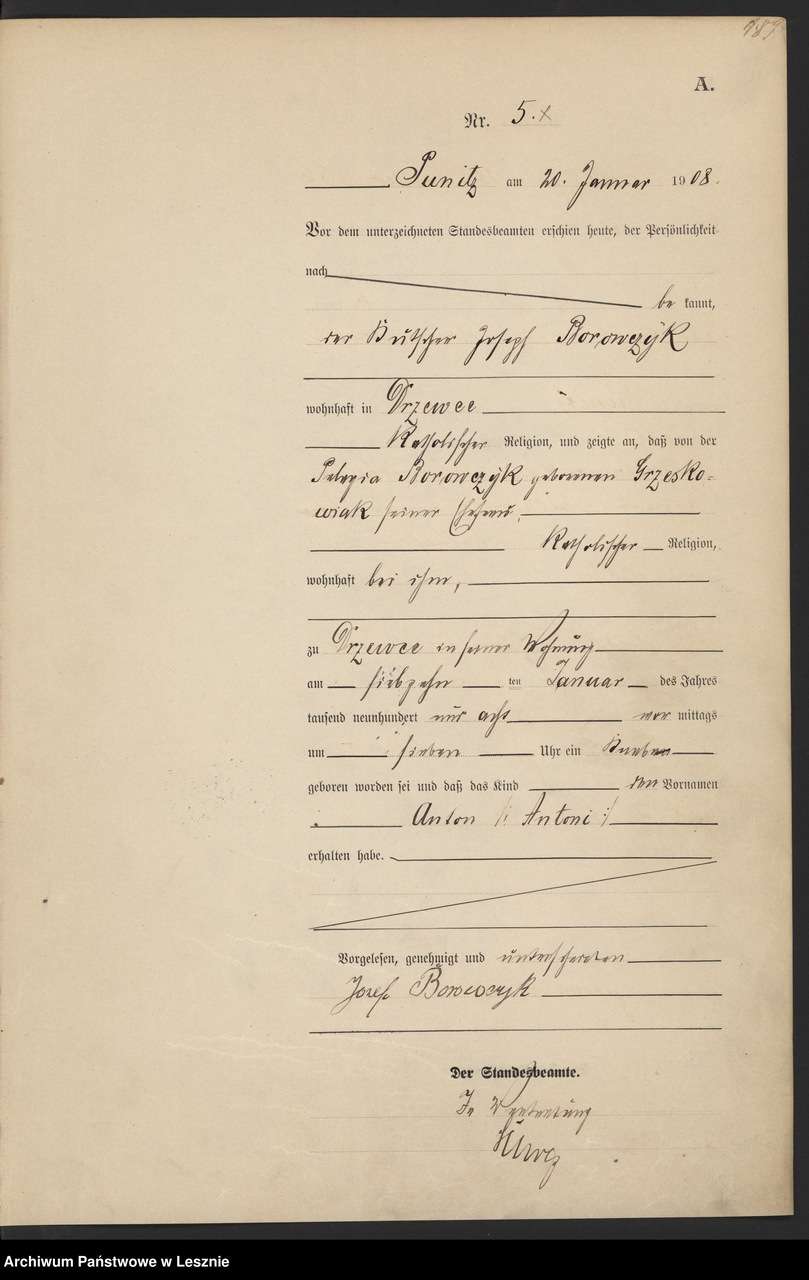 187
A.
Nr. 5.
Punitz am 20. Januar 1908.
Vor dem unterzeichneten Standesbeamten erschien heute, der Persönlichkeit
nach
be kannt,
der Kutscher Joseph Borowczyk
wohnhaft in Drzewce
Katholischer Religion, und zeigte an, daß von der
Pelagia Borowczyk geborenen Grzesko=
wiak seiner Ehefrau,
Katholischer Religion,
wohnhaft bei ihm,
zu Drzewce in seiner Wohnung
am siebzehn ten Januar des Jahres
tausend neunhundert und acht vor mittags
um sieben Uhr ein Knabe
geboren worden sei und daß das Kind den Vornamen
Anton /: Antoni :/
erhalten habe.
Vorgelesen, genehmigt und unterschrieben
Josef Borowczyk
Der Standesbeamte.
In Vertretung
Archiwum Państwowe w Lesznie